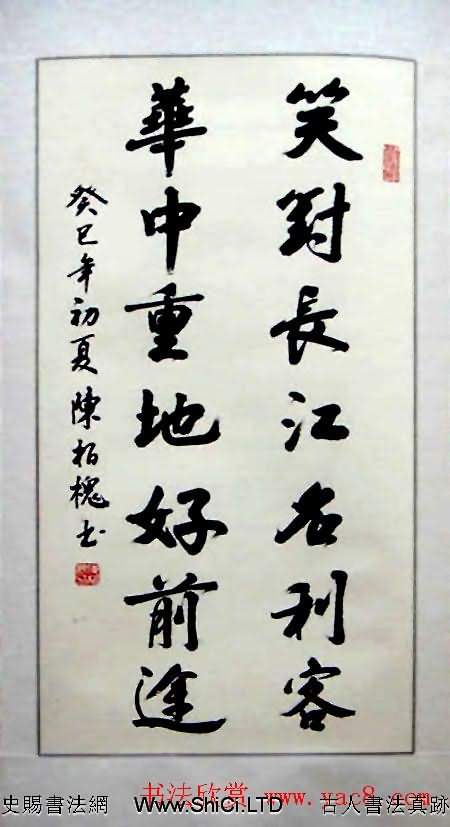 笑對長江名利客
華中重地好前途
癸巳年初夏陳柏槐書
书法欣赏 www.yac8.com
史賜書法網 Www.ShiCi.LTD 古人書法真跡